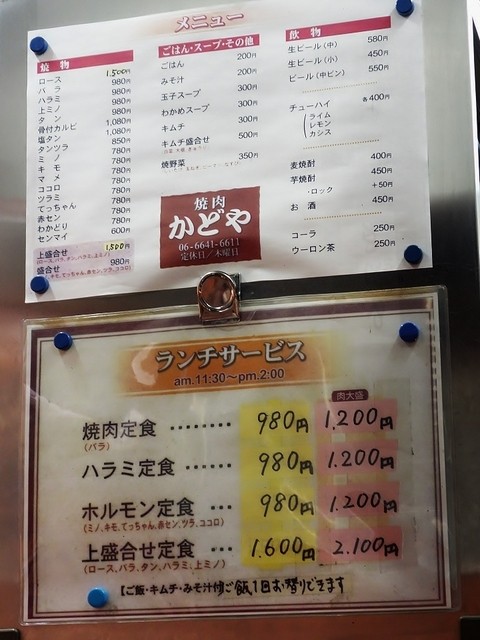 メニュー
焼物
ロース 1,500円
バラ 980円
ハラミ 980円
上ミノ 980円
タン 1,080円
骨付カルビ 1,080円
塩タン 850円
タンツラ 780円
ミノ 780円
キモ 780円
マメ 780円
ココロ 780円
ツラミ 780円
てっちゃん 780円
赤セン 780円
わかどり 780円
センマイ 600円
上盛合せ 1,500円
(ロース、バラ、タン、ハラミ、上ミノ)
盛合せ 980円
ごはん・スープ・その他
ごはん 200円
みそ汁 200円
玉子スープ 300円
わかめスープ 300円
キムチ 300円
キムチ盛合せ 500円
焼野菜 350円
飲物
生ビール(中) 580円
生ビール(小) 450円
ビール(中ビン) 550円
チューハイ 各400円
ライム
レモン
カシス
麦焼酎 400円
芋焼酎 450円
・ロック +50円
お酒 450円
コーラ 250円
ウーロン茶 250円
焼肉
かどや
06-6641-6611
定休日/木曜日
ランチサービス
am.11:30〜pm.2:00
肉大盛
焼肉定食 ‥‥‥‥ 980円 1.200円
(バラ)
ハラミ定食 ‥‥‥ 980円 1.200円
ホルモン定食 ‥ 980円 1.200円
(ミノ、キモ、てっちゃん、赤セン、ツラ、ココロ)
上盛合せ定食 ‥ 1.600円 2.100円
(ロース、バラ、タン、ハラミ、上ミノ)
【ご飯・キムチ・みそ汁付】ご飯1回お替りできます